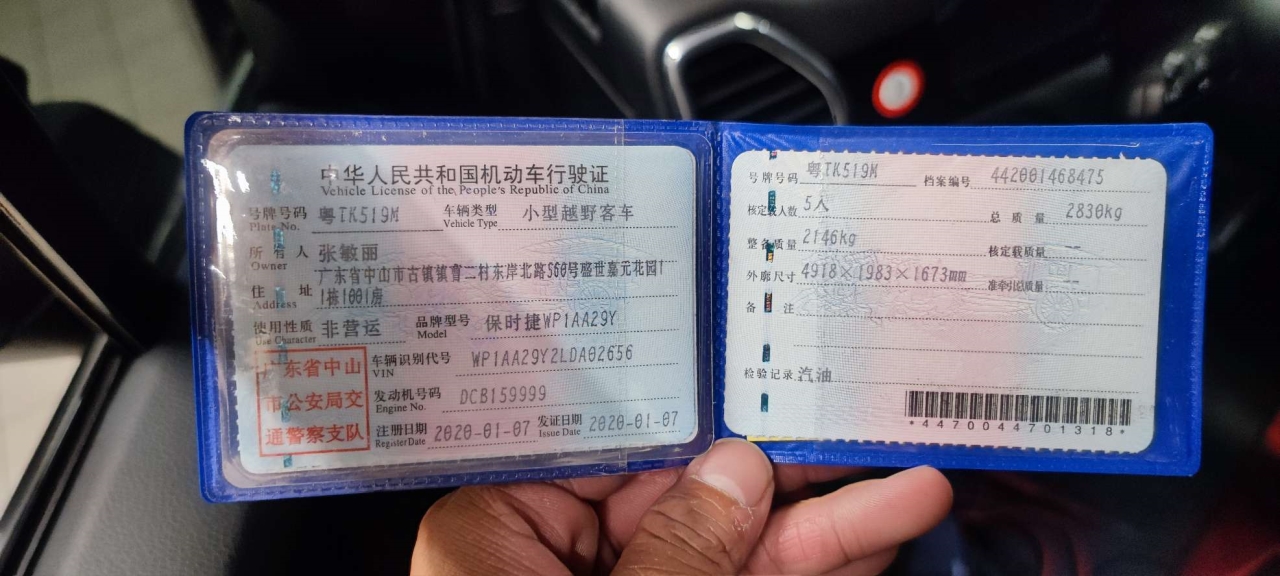 中华人民共和国机动车行驶证
Vehicle License of the People's Republic of China
号牌号码 粤TK519M 车辆类型 小型越野客车
Plate No. Vehicle Type
所有人 张敏丽
Owner
广东省中山市古镇镇曹二村东岸北路560号盛世嘉元花园1
住址 1栋1001房
Address
使用性质 非营运 品牌型号 保时捷WP1AA29Y
Use Character Model
广东省中山
市公安局交
通警察支队
车辆识别代号 WP1AA29Y2LDA02656
VIN
发动机号码 DCB159999
Engine No.
注册日期 2020-01-07 发证日期 2020-01-07
Register Date Issue Date
号牌号码 粤TK519M 档案编号 442001468475
核定载人数 5人 总质量 2830kg
整备质量 2146kg 核定载质量 --
外廓尺寸 4918×1983×1673mm 准牵引总质量 --
备注
检验记录 汽油
*4470044701318*